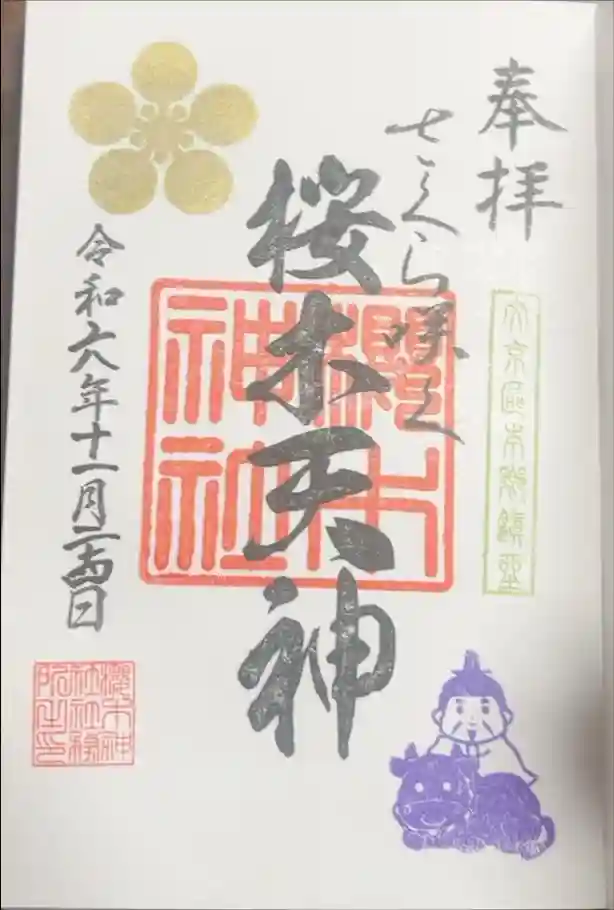 奉拝
文京區本郷鎮座
さくら咲く
桜木天神
櫻木神社
令和六年十一月二十四日
櫻木神社社務所之印